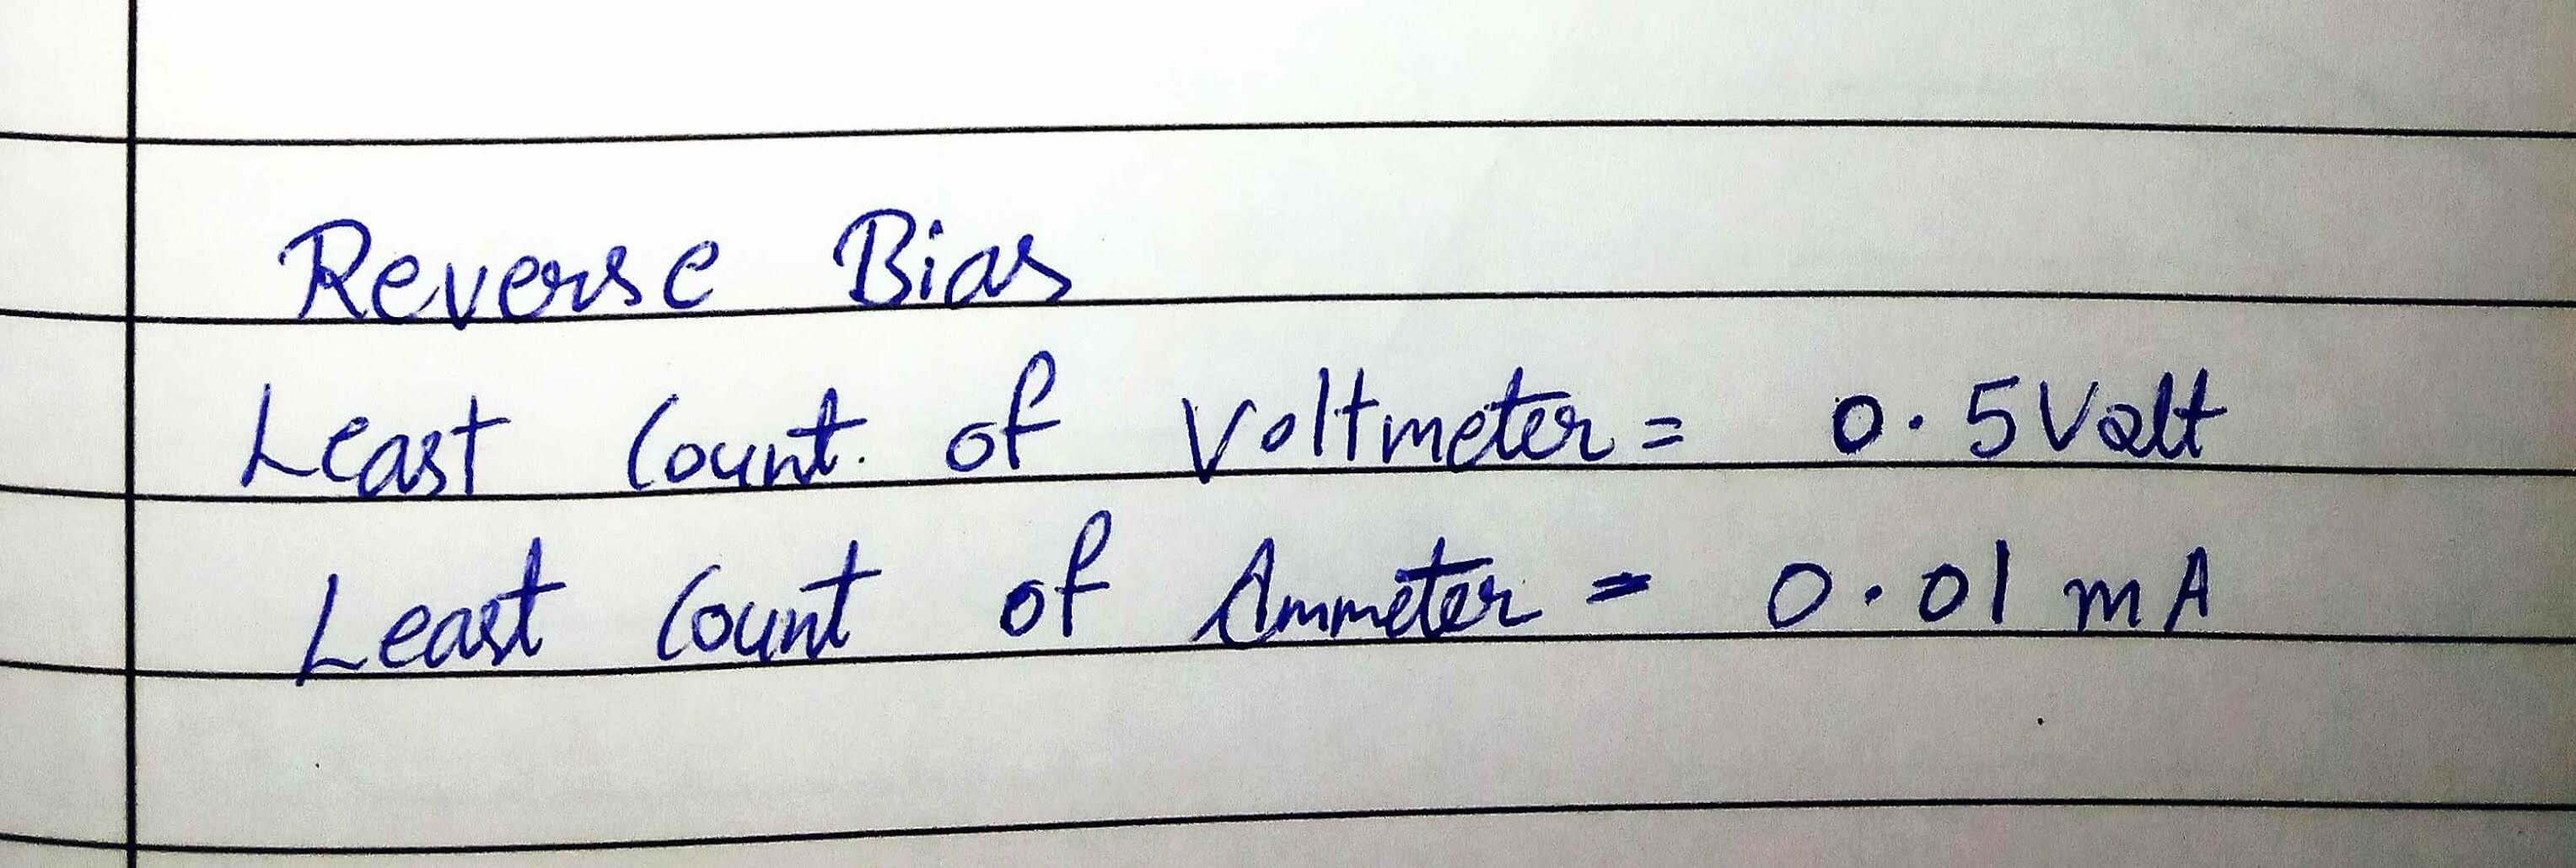 Reverse Bias
Least Count. of Voltmeter = 0.5 Volt
Least Count of Ammeter = 0.01 mA